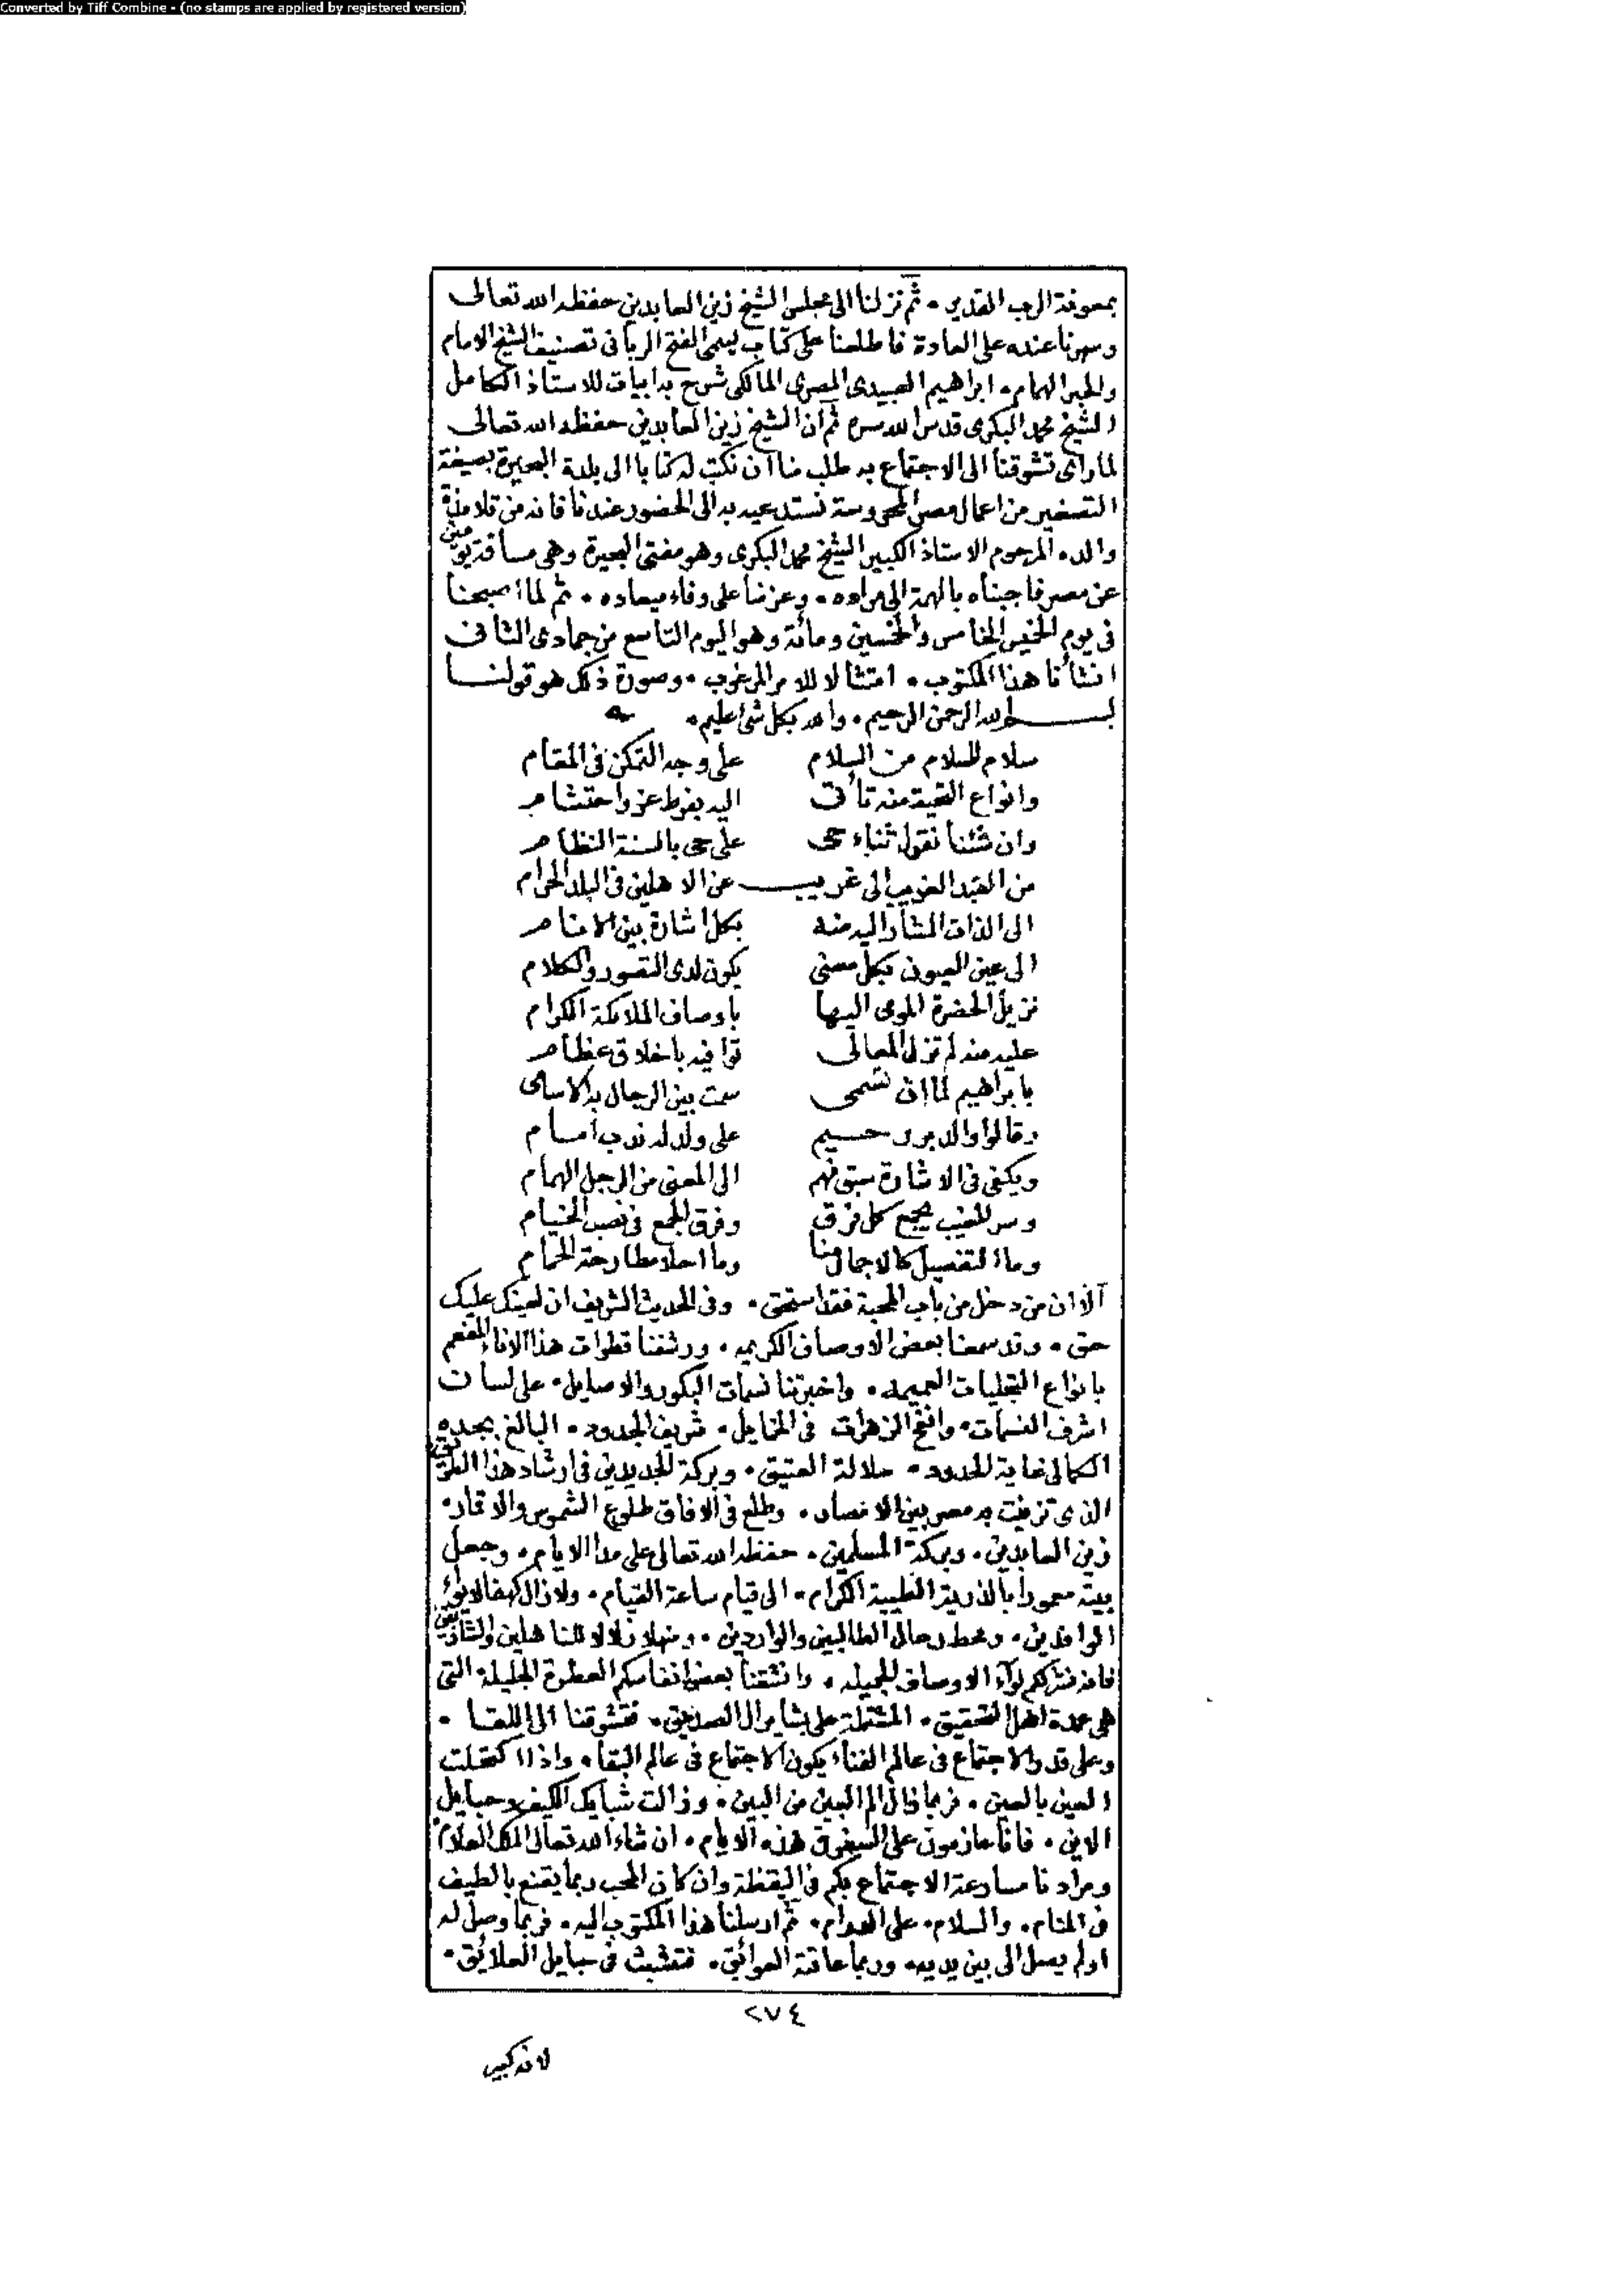 Converted by Tiff Combine - (no stamps are applied by registered version)
بمعونة الرب القدير • ثم نزلنا الى مجلس الشيخ زين العابدين حفظه الله تعالى
وسهرنا عنده على العادة فاطلعنا على كتاب يسمى الفتح الربانى تصنيف الشيخ الامام
والحبر الهمام • ابراهيم العبيدى المصرى المالكى شرح به ابيات للاستاذ الكامل
الشيخ محمد البكرى قدس الله سره ثم ان الشيخ زين العابدين حفظه الله تعالى
لما راى تشوقنا الى الاجتماع به طلب منا ان نكتب له كتابا الى بلدة البحيرة بصيغة
التصغير من اعمال مصر المحروسة نستدعيه به الى الحضور عندنا فانه من تلامذة
والده المرحوم الاستاذ الكبير الشيخ محمد البكرى وهو مفتى البحيرة وهى مسافة يومين
عن مصر فاجبناه بالهمة الى مراده • وعزمنا على وفاء ميعاده • ثم لما اصبحنا
فى يوم الخميس الخامس والخمسين ومائة وهو اليوم التاسع من جمادى الثانى
انشأنا هذا المكتوب • امتثالا للامر المرغوب • وصورة ذلك هو قولنا
بسم الله الرحمن الرحيم • والله بكل شئ عليم •
سلام للسلام من السلام على وجه التمكن فى المقام
وانواع التحية منه تأتى اليه بفرط عز واحتشام
وان شئنا نقول ثناء حى على حى بالسنة النظام
من العبد الغريب الى غريب عن الاهلين فى البلد الحرام
الى الذات المشار اليه منه بكل اشارة بين الانام
الى عين العيون بكل معنى يكون لدى التصور والكلام
نزيل الحضرة المومى اليها باوصاف الملائكة الكرام
عليه منه لم تزل المعالى توافيه باخلاق عظام
بابراهيم لما ان تسمى سمت بين الرجال به الاسامى
وقالوا والد بر رحيم على ولد له ندب امام
ويكفى فى الاشارة سبق فهم الى المعنى من الرجل الهمام
وسر الغيب يجمع كل فرق وفرق الجمع فى نصب الخيام
وما التفصيل كالاجمال منا وما احلا مطارحة الحمام
ألا ان من دخل من باب المحبة فقد استحق • وفى الحديث الشريف ان لعينك عليك
حق • وقد سمعنا بعض الاوصاف الكريمه • ورشفنا قطرات هذا الاناء المفعم
بانواع التجليات العميمه • واخبرتنا نسمات البكور والاصايل • على لسان
اشرف النسمات • وافخ الزهرات فى الخمايل • شريف الجدود • البالغ بجده
الكمالى غاية الحدود • سلالة العتيق • وبركة الجديدين فى ارشاد هذا الطريق
الذى تزينت به مصر بين الامصار • وطلع فى الافاق طلوع الشموس والاقمار •
زين العابدين • وبركة المسلمين • حفظه الله تعالى على مدا الايام • وجعل
بيته معمورا بالذرية الطيبة الكرام • الى قيام ساعة القيام • ولا زال كهفا لايواء
الوافدين • ومحط رحال الطالبين والواردين • ومنهلا زلالا للناهلين والشاربين
فانه نشر لكم لواء الاوصاف الجميله • وانشقنا بعض انفاسكم العطرة الجليلة التى
هى عمدة اهل التحقيق • المشتملة على بشاير ال الصديق • فتشوقنا الى اللقا •
وعلى قدر الاجتماع فى عالم الفناء يكون الاجتماع فى عالم البقا • واذا اكتحلت
العين بالعين • فربما زال الم البين من البين • وزالت شبايك الكيف وحبايل
الاين • فانا عازمون على السفر فى هذه الايام • ان شاء الله تعالى الملك العلام
ومرادنا مسارعة الاجتماع بكم فى اليقظة وان كان المحب ربما يقنع بالطيف
فى المنام • والسلام • على الدوام • ثم ارسلنا هذا المكتوب اليه • فربما وصل له
او لم يصل الى بين يديه • وربما عاقته العوائق • فتشبث فى حبايل العلائق •
٢٧٤
لانه كبير